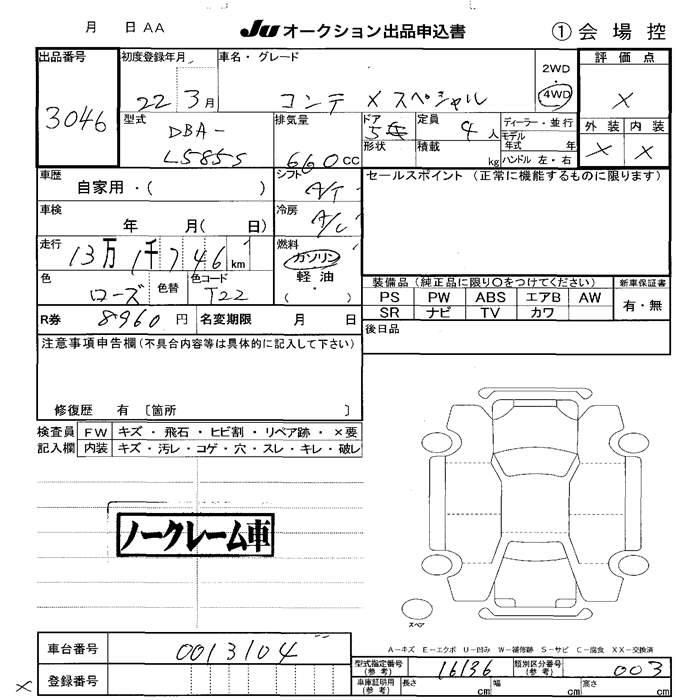 月 日 AA JU オークション出品申込書 ① 会場控
出品番号 初度登録年月 車名・グレード 2WD ・ 4WD 評価点
3046 22 3月 コンテ Xスペシャル ×
型式 排気量 ドア 定員 ディーラー・並行 外装 内装
DBA- 5 4人 モデル年式 年 × ×
L585S 660cc 形状 積載 kg ハンドル 左・右
車歴 シフト セールスポイント (正常に機能するものに限ります)
自家用・( ) A/T
車検 冷房
年 月( 日) A/C
走行 燃料
13万1千746km ガソリン
色 色替 色コード 軽油 装備品(純正品に限り○をつけてください) 新車保証書
ローズ T22 ( ・ ) PS PW ABS エアB AW 有・無
SR ナビ TV カワ
R券 8960円 名変期限 月 日 後日品
注意事項申告欄(不具合内容等は具体的に記入して下さい)
修復歴 有 〔箇所 〕
検査員 FW キズ・飛石・ヒビ割・リペア跡・×要
記入欄 内装 キズ・汚レ・コゲ・穴・スレ・キレ・破レ
ノークレーム車
スペア
A-キズ E-エクボ U-凹み W-補修跡 S-サビ C-腐食 XX-交換済
車台番号 0013104 型式指定番号(参考) 16136 類別区分番号(参考) 003
× 登録番号 車庫証明用(参考) 長さ cm 幅 cm 高さ cm